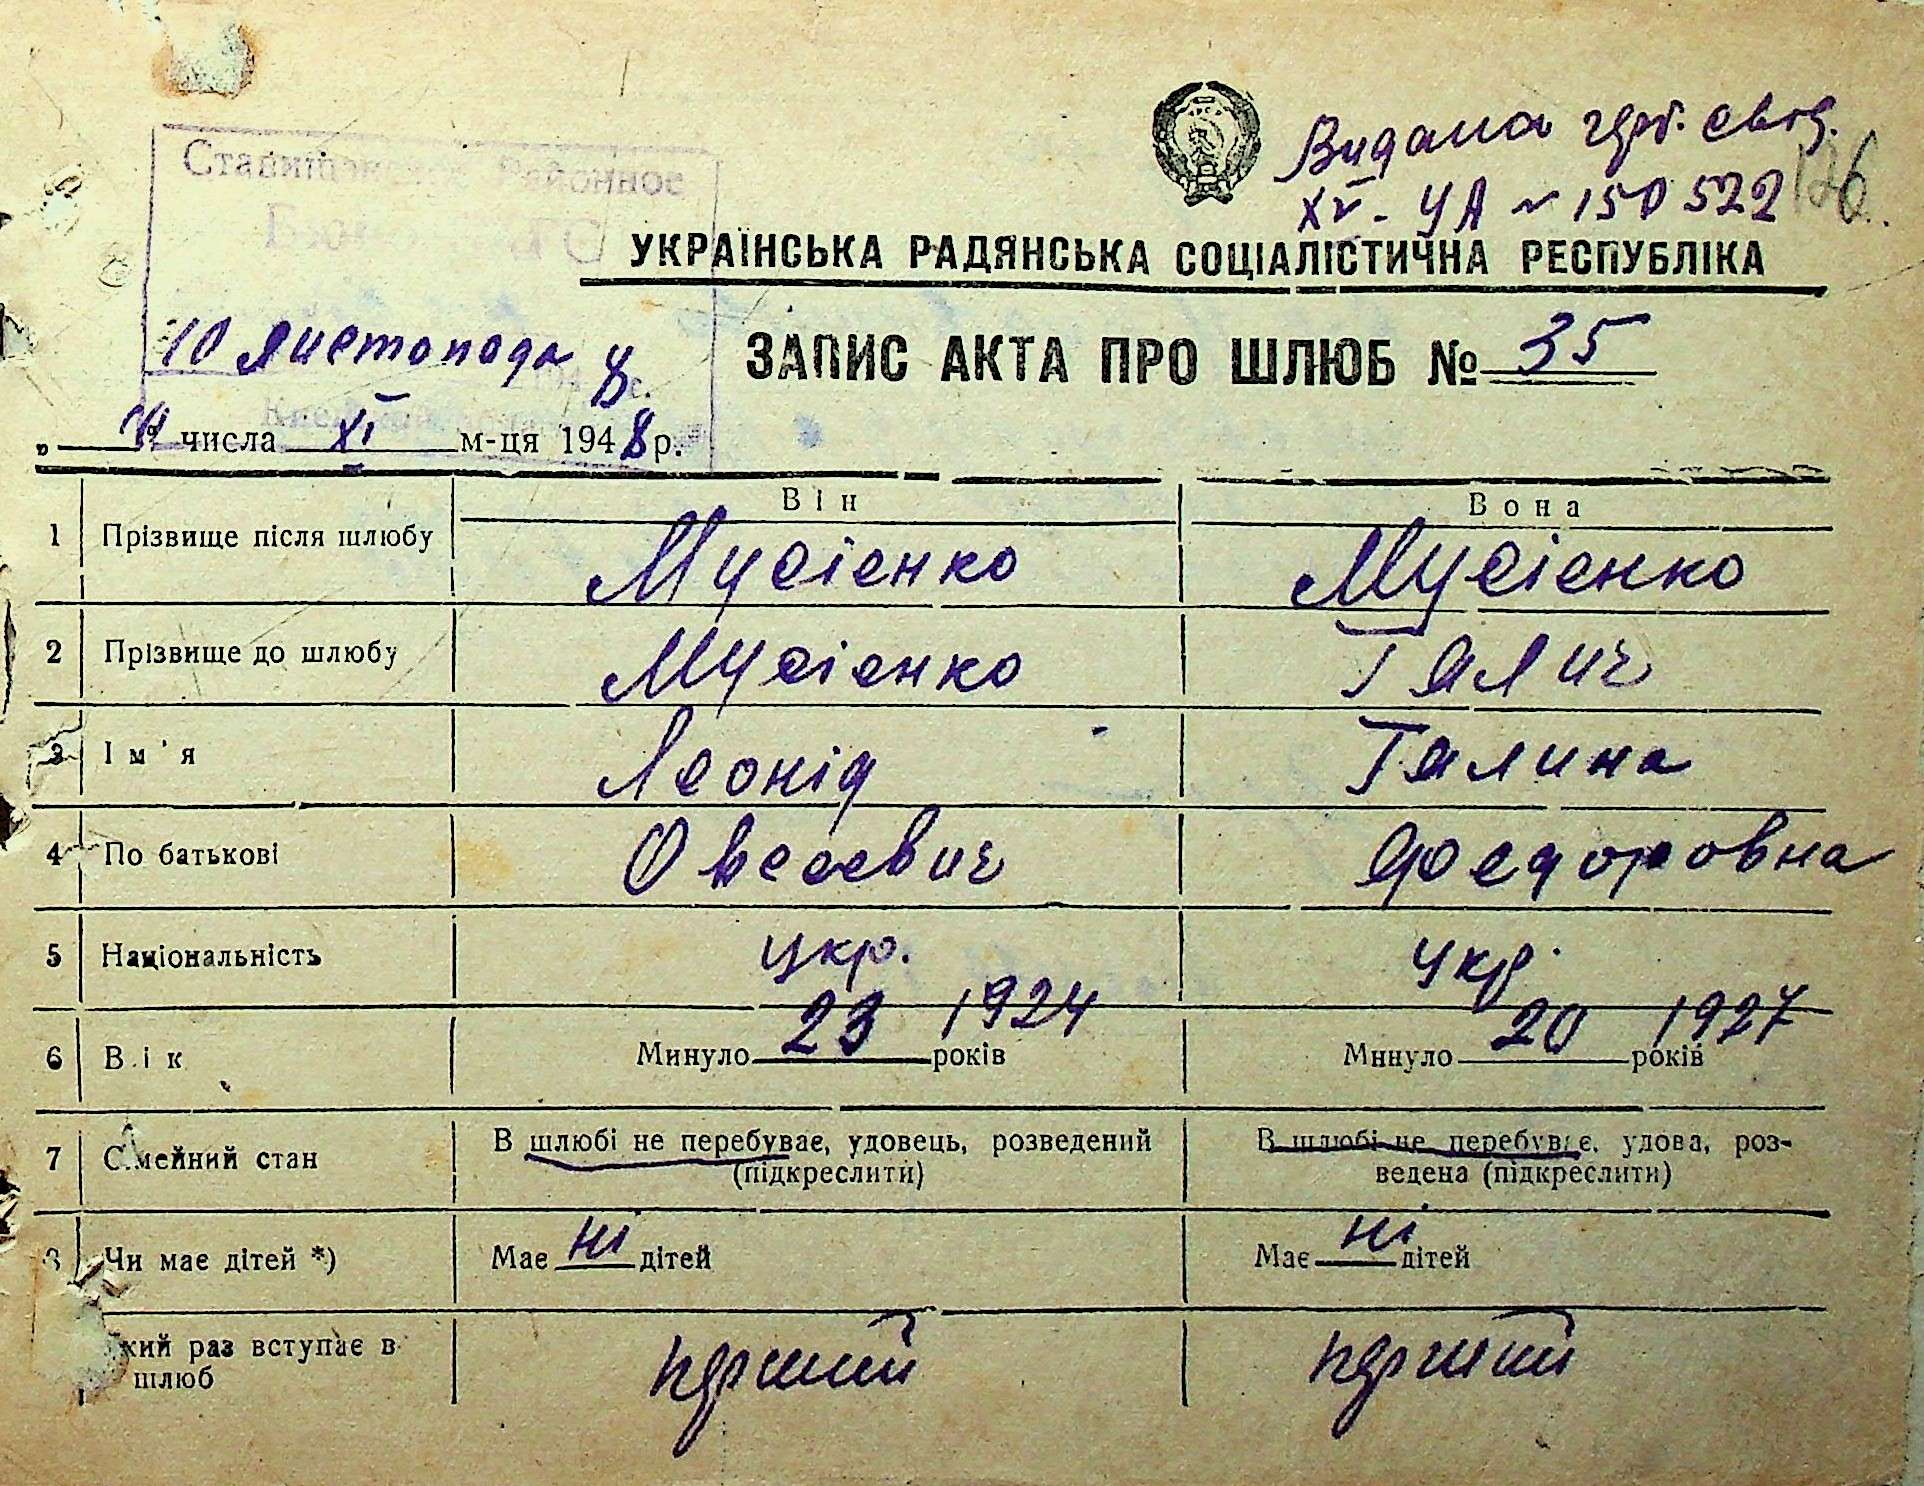 Видана гр. свід.
XV - УА № 150522
126
Ставищанское Районное
Бюро ЗАГС
УКРАЇНСЬКА РАДЯНСЬКА СОЦІАЛІСТИЧНА РЕСПУБЛІКА
10 листопада 8
ЗАПИС АКТА ПРО ШЛЮБ № 35
„ 10 числа XI м-ця 1948 р.
Він Вона
1 Прізвище після шлюбу Мусієнко Мусієнко
2 Прізвище до шлюбу Мусієнко Галич
3 Ім'я Леонід Галина
4 По батькові Овсеєвич Федоровна
5 Національність укр. укр.
6 Вік Минуло 23 років 1924 Минуло 20 років 1927
7 Сімейний стан В шлюбі не перебуває, удовець, розведений (підкреслити) В шлюбі не перебуває, удова, роз-
ведена (підкреслити)
8 Чи має дітей *) Має ні дітей Має ні дітей
кий раз вступає в
шлюб перший перший